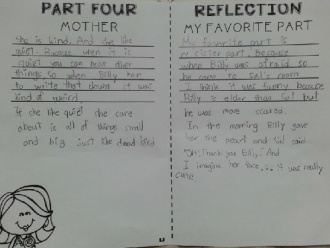 PART FOUR
MOTHER
She is kind. And she like
quiet. Because when it is
quiet you can hear other
things. So when Billy her
to write that drum it was
kind of weird.
If she like quiet she care
about is all of things small
and big just she
REFLECTION
MY FAVORITE PART
My favorite part is
sister part. Because
when Billy was afraid so
he came to Sal's room
I think it was funny because
Billy is elder than Sal but
he was more scared.
In the morning Billy gave
her the heart and Sal said
"Oh, Thank you Billy." And
I imagine her face... it was really
cute